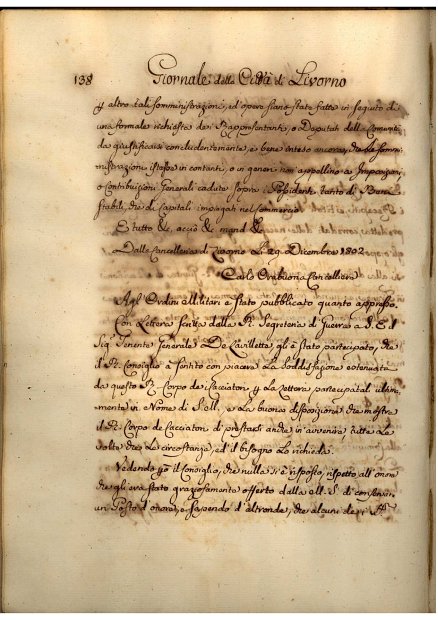 138 Giornale della Città di Livorno
altre tali somministrazioni, ed opere siano state fatte in seguito di
una formale richiesta dei Rappresentanti, o Deputati delle Comunità
da giustificarsi concludentemente, e bene inteso ancora, che le sommi-
nistrazioni istesse in contanti, o in generi non appellino a Imposizioni,
o Contribuzioni Generali cadute sopra i Possidenti tanto di Beni
stabili, che di Capitali impiegati nel Commercio.
E tutto &c mand &c
Dalla Cancelleria di Livorno Li 29. Dicembre 1802.
Carlo Cancelliere
Agl' Ordini Militari è stato pubblicato quanto appresso
Con Lettera scritta dalla R. Segreteria di Guerra a S. E. il
Sig. Tenente Generale De Lavillette gli è stato partecipato, che
il R. Consiglio à sentito con piacere la soddisfazione esternata
da questo R. Corpo de' Cacciatori la Lettera, partecipatali
in Nome di S. M., e la buona disposizione che mostra
il R. Corpo de Cacciatori di prestarsi anche in avvenire tutte le
volte che le circostanze, ed il bisogno lo richieda.
Vedendo il Consiglio, che nulla si è risposto, rispetto all' onore
che gli era stato graziosamente offerto dalla M. S. di conservare
un Posto d'onore, e sapendo d'altronde, che alcuni de i